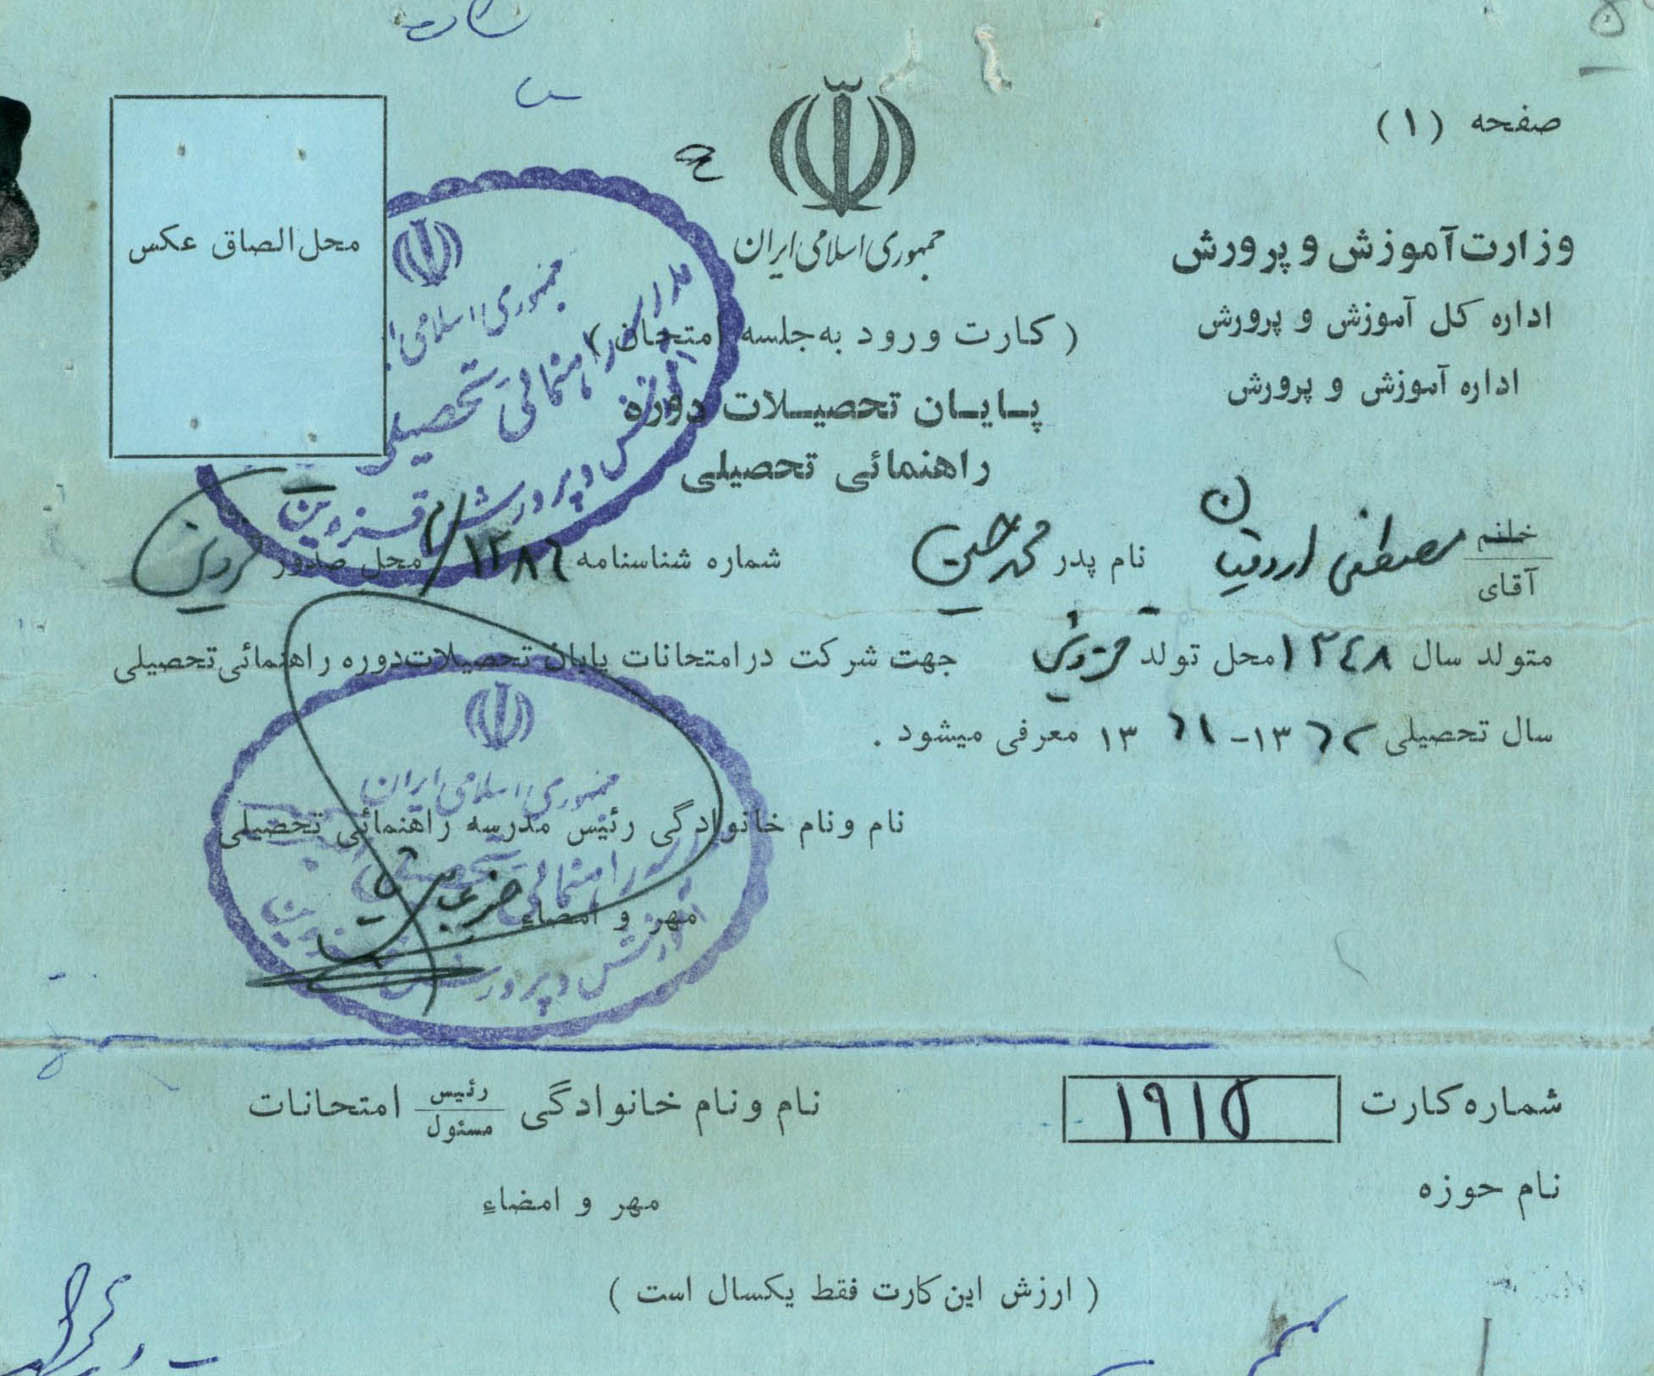 صفحه (۱)
جمهوری اسلامی ایران
وزارت آموزش و پرورش
اداره کل آموزش و پرورش
اداره آموزش و پرورش
محل الصاق عکس
(کارت ورود به جلسه امتحان)
پایان تحصیلات دوره
راهنمائی تحصیلی
جمهوری اسلامی
راهنمائی تحصیلی
آموزش و پرورش قزوین
خانم
آقای مصطفی نام پدر محمد حسین شماره شناسنامه محل صدور قزوین
متولد سال ۱۳٤۸ محل تولد قزوین جهت شرکت در امتحانات پایان تحصیلات دوره راهنمائی تحصیلی
سال تحصیلی ۱۳۶۲-۱۳۶۱ معرفی میشود .
جمهوری اسلامی ایران
نام و نام خانوادگی رئیس مدرسه راهنمائی تحصیلی
راهنمائی
مهر و امضاء
آموزش و پرورش
شماره کارت ۱۹۱۵
نام و نام خانوادگی رئیس مسئول امتحانات
نام حوزه
مهر و امضاء
(ارزش این کارت فقط یکسال است)